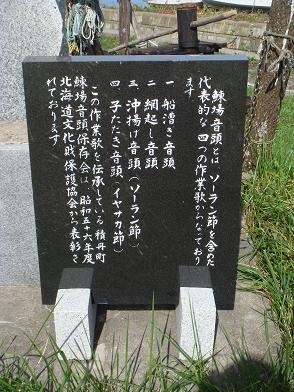 鰊場音頭とは、ソーラン節を含めた
代表的な四つの作業歌からなっており
ます
一 船漕ぎ音頭
二 網起し音頭
三 沖揚げ音頭(ソーラン節)
四、子たたき音頭(イヤサカ節)
この作業歌を伝承している積丹町
鰊場音頭保存会は、昭和五十六年度
北海道文化財保護協会から表彰さ
れております。